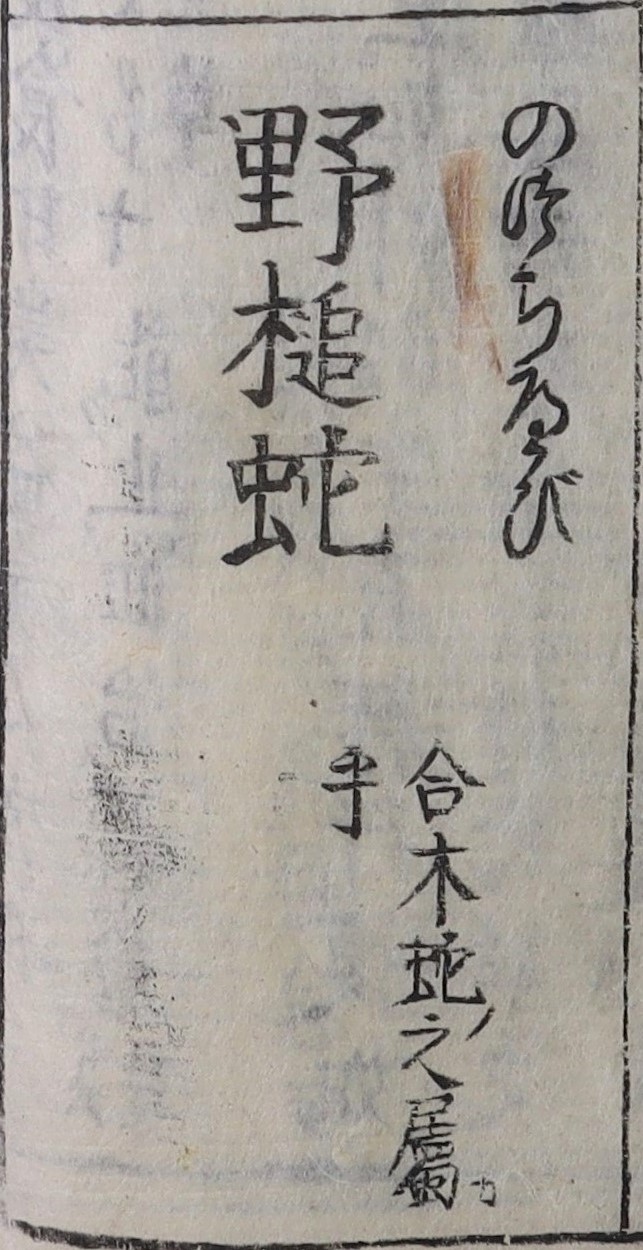 のづちへび
野槌蛇
合木蛇ノ之属カ
乎